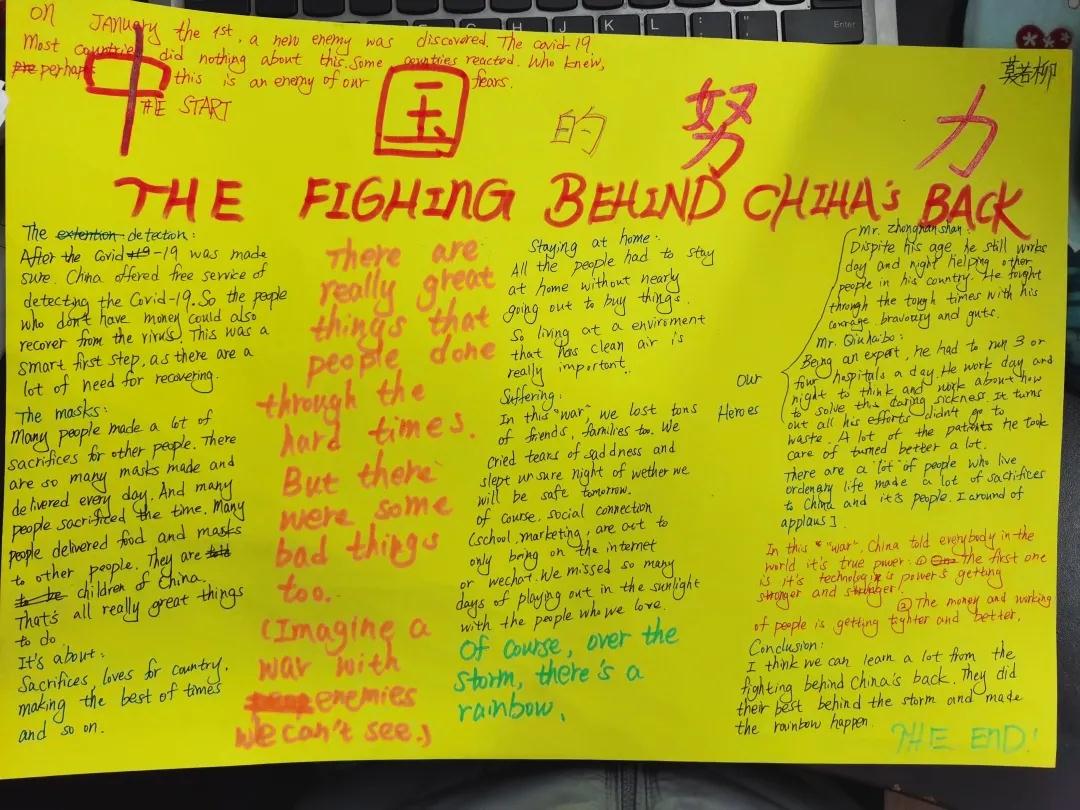 On January the 1st, a new enemy was discovered. The covid-19.
Most countries did nothing about this. Some countries reacted. Who knew,
perhaps this is an enemy of our fears.
THE START
莫若柳
中国的努力
THE FIGHING BEHIND CHIHA's BACK
The detection:
After the covid-19 was made
sure. China offered free service of
detecting the Covid-19. So the people
who don't have money could also
recover from the virus. This was a
smart first step, as there are a
lot of need for recovering.
The masks:
Many people made a lot of
sacrifices for other people. There
are so many masks made and
delivered every day. And many
people sacrificed the time. Many
people delivered food and masks
to other people. They are
children of China.
That's all really great things
to do
It's about:
Sacrifices, loves for country.
making the best of times
and so on.
There are
really great
things that
people done
through the
hard times.
But there
were some
bad things
too.
(Imagine a
war with
enemies
we can't see.)
Staying at home:
All the people had to stay
at home without nearly
going out to buy things.
So living at a enviroment
that has clean air is
really important.
Suffering:
In this "war", we lost tons
of friends, families too. We
cried tears of saddness and
slept unsure night of wether we
will be safe tomorrow.
Of course, social connection
(school, marketing, are act to
only bring on the internet
or wechat. We missed so many
days of playing out in the sunlight
with the people who we love.
Of course, over the
storm, there's a
rainbow.
Our
Heroes
Mr. Zhongnanshan:
Dispite his age, he still works
day and night helping other
people in his country. He fought
through the tough times with his
courage, bravoury and guts.
Mr. Qiuhaibo:
Being an expert, he had to run 3 or
four hospitals a day. He work day and
night to think and work about how
to solve this daring sickness. It turns
out all his efforts didn't go to
waste. A lot of the patients he took
care of turned better a lot.
There are a "lot" of people who live
ordenary life made a lot of sacrifices
to China and it's people. [around of
applaus]
In this "war", China told everybody in the
world it's true power: ① The first one
is it's technology's power's getting
stronger and stronger.
② The money and working
of people is getting tighter and better.
Conclusion:
I think we can learn a lot from the
fighting behind China's back. They did
their best behind the storm and made
the rainbow happen.
THE END!